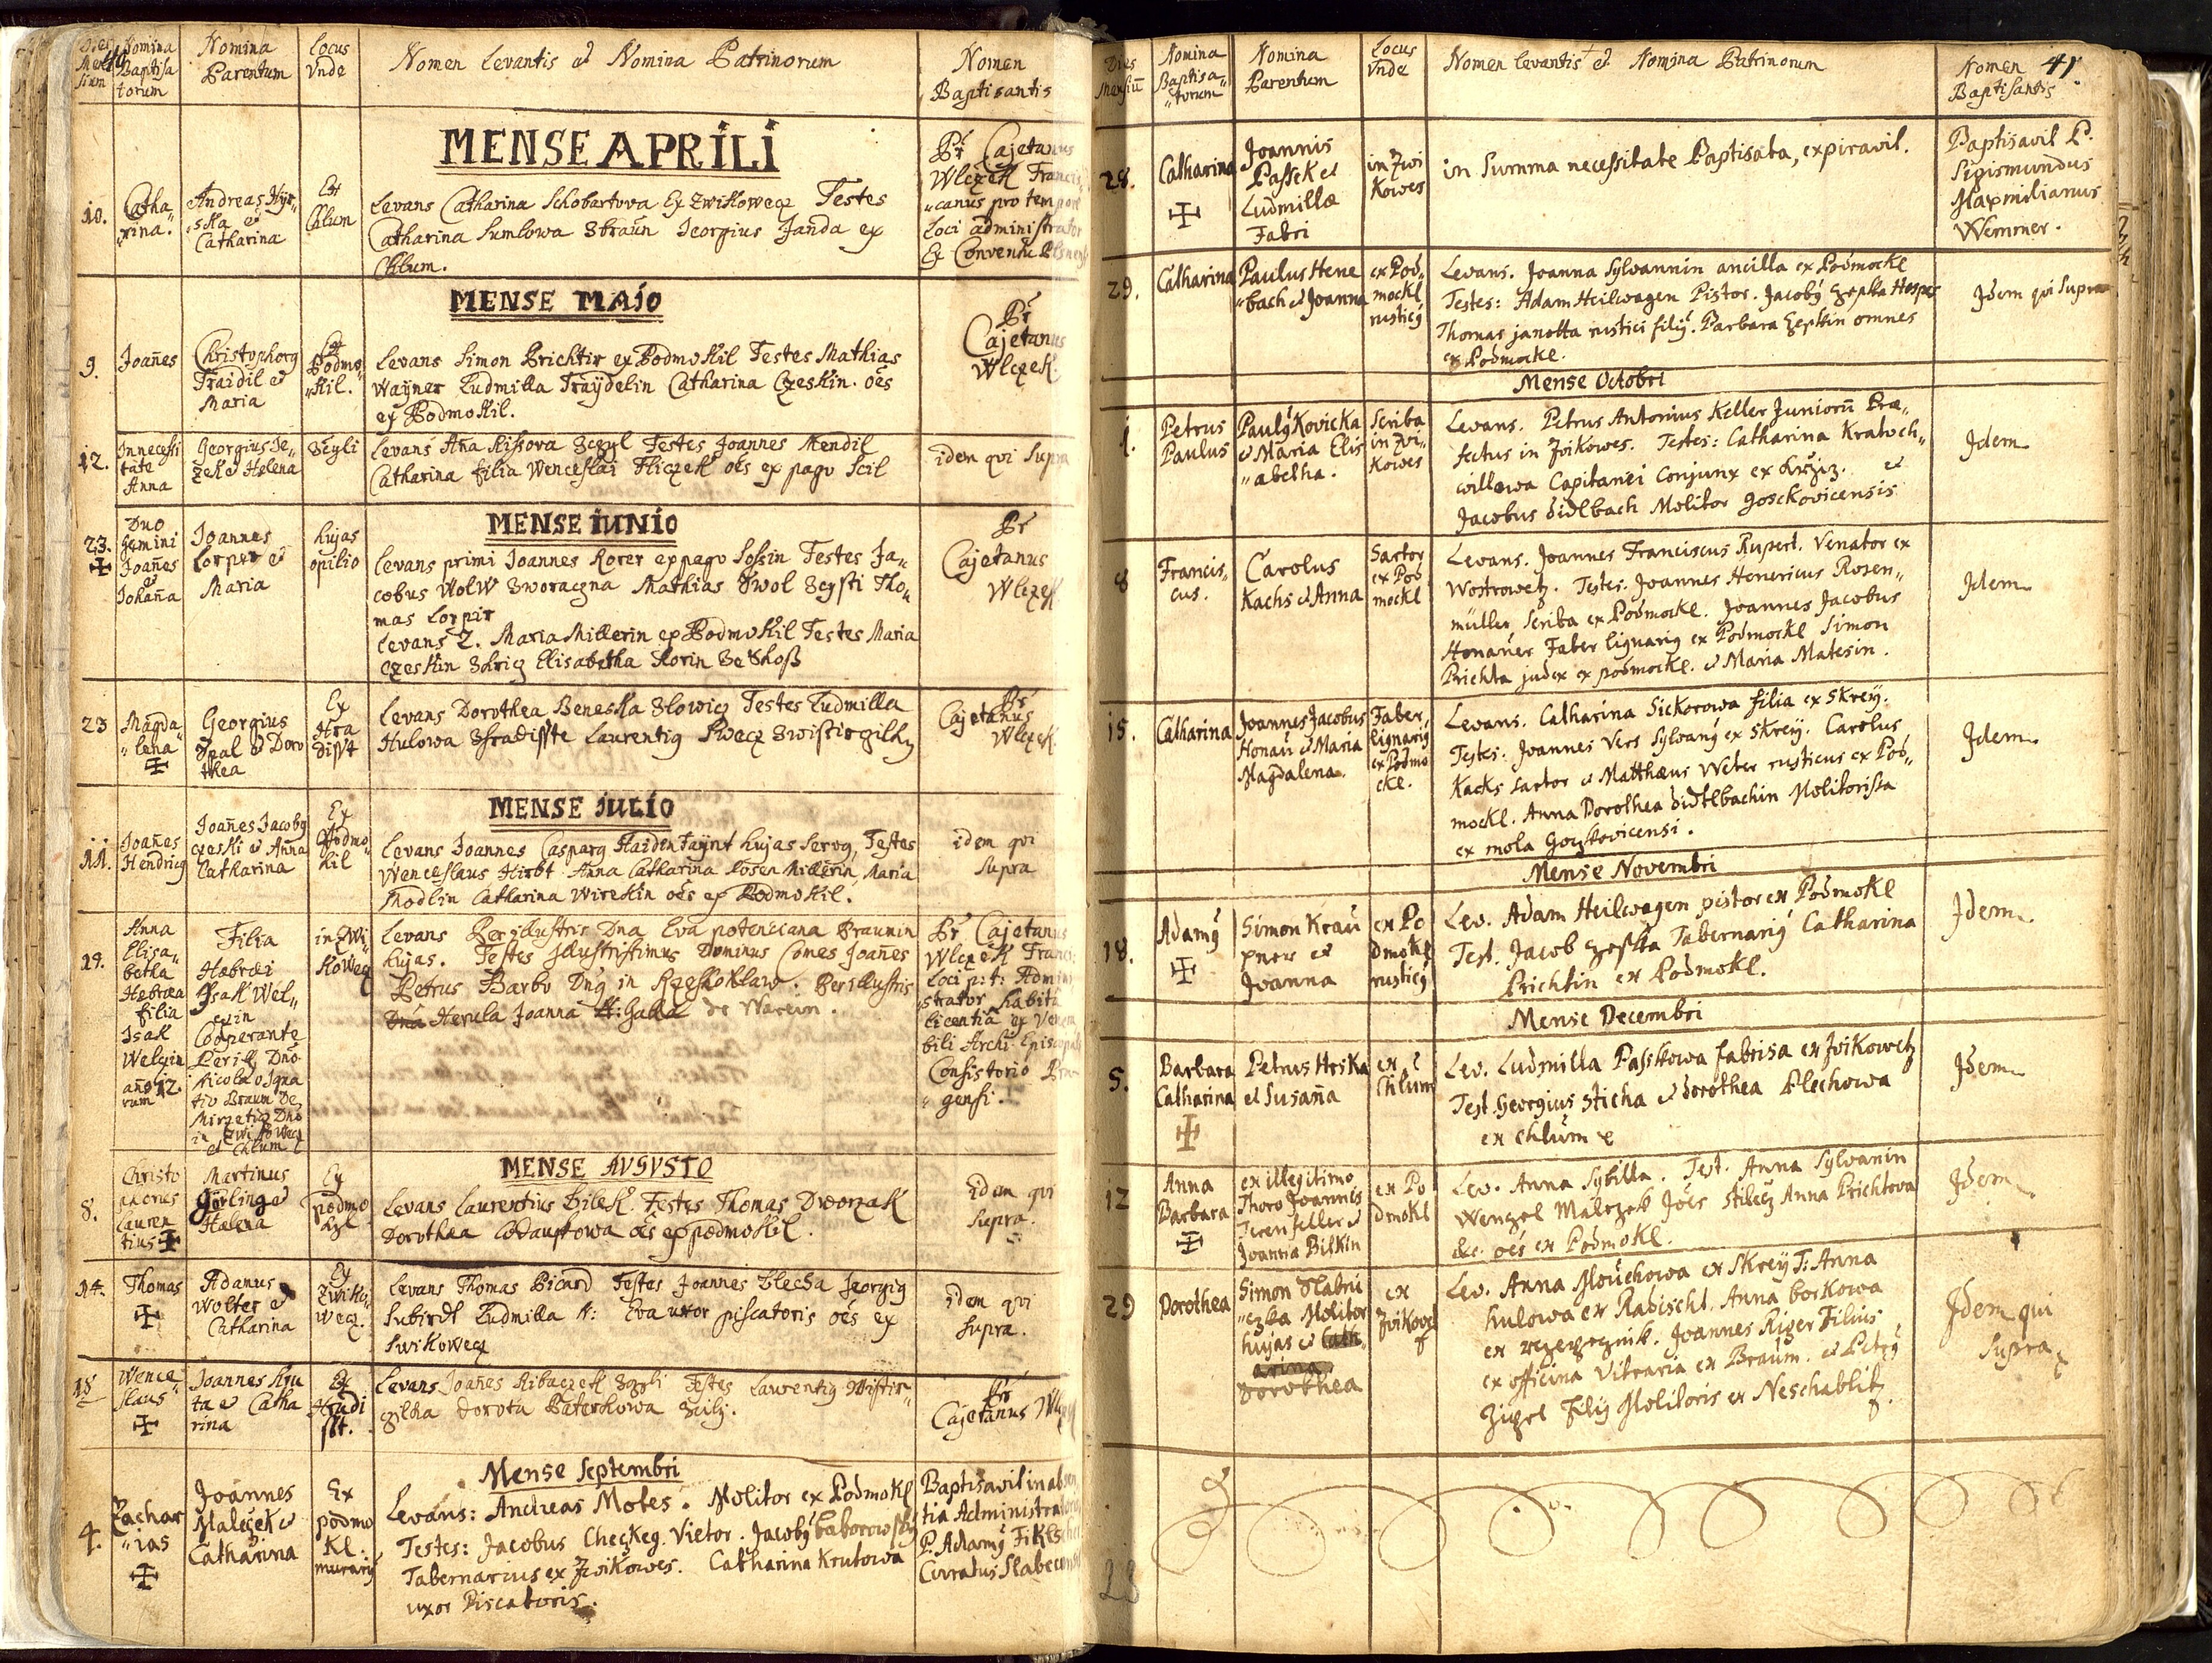 40
Dies Mensium
Nomina Baptisatorum
Nomina Parentum
Locus Unde
Nomen Levantis et Nomina Patrinorum
Nomen Baptisantis
MENSE APRILI
10.
Catha„
„rina.
Andreas Hyr„
„ska et
Catharina
Ex
Chlum
Levans Catharina Schobartova Ex Zwikowecz Testes
Catharina Sumlowa Straun Georgius Janda ex
Chlum.
Pr Cajetanus
Wlczek Francis
„canus pro tempore
Loci administrator
Ex Conventu
MENSE MAIO
9.
Joañes
Christophorg
Traidil et
Maria
Ex
Podmo„
„kil.
Levans Simon Prichtir ex Podmokil Testes Mathias
Wayner Ludmilla Traydelin Catharina Czeskin. oés
ex Podmokil.
Pr
Cajetanus
Wlczek.
12.
In necessi
tate
Anna
Georgius Je„
zek et Helena
Levans Aña Rissova Testes Joannes Mendil
Catharina filia Wenceslai Hliczek oés ex pago Scil
idem qvi Supra
MENSE IUNIO
23.
Duo
gemini
Joañes
et
Johaña
Joannes
Lorper et
Maria
hujas
opilio
Levans primi Joannes Rorer ex pago Lossin Testes Ja„
cobus Wolw Sworaczna Mathias Tho„
mas Lorpir
Levans 2. Maria Millerin ex Podmokil Testes Maria
Czeskin Elisabetha
Pr
Cajetanus
Wlczek
23
Magda
„lena
Georgius
Opal et Doro
thea
Ex
Hra
disst
Levans Dorothea Beneska Slowicz Testes Ludmilla
Hulowa Laurentig
Pr
Cajetanus
Wlczek
MENSE JULIO
11.
Joañes
Hendricg
Joañes Jacobg
czeski et Anna
Catharina
Ex
Podmo
kil
Levans Joannes Casparg hujas Servg, Testes
Wenceslaus Hirbt Anna Catharina Rosen Millerin, Maria
Modlin Catharina Wirekin oés ex Podmokil.
idem qvi
Supra
19.
Anna
Elisa„
betha
Hebræa
filia
Isak
Welzin
año 12.
rum
Filia
Hæbræi
Isak Wel„
zin
Cooperante
Dño
Nicolao Igna
tio Braum De
Dño
in Zwikowecz
et Chlum
in Zwi
kowecz
Levans Perillustris Dna Eva potenciana Braunin
hujas. Testes Illustrissimus Dominus Comes Joañes
Petrus Barbo Dñg in Perillustris
Dna Herula Joanna de Warein.
Pr Cajetanus
Wlczek Francis:
Loci p: t: Admini
strator habita
licentia ex Vene
bili Archi Episcopali
Consistorio Pra
„gensi.
MENSE AVGVSTO
8.
Christo
Lauren
tius
Martinus
Görling et
Helena
Ex
podmo
kyl
Levans Laurentius Bilek. Testes Thomas Dworzak
Dorothea oés ex podmokil.
idem qvi
Supra.
14.
Thomas
Adamus
Wolter et
Catharina
Ex
Zwiko„
wecz.
Levans Thomas Picard Testes Joannes Blecha Georgig
Ludmilla N: Eva uxor piscatoris oés ex
Swikowecz
idem qvi
Supra.
18
Wence„
slaus
Joannes Kru
ta et Catha
rina
Ex
Hradi
sst.
Levans Joañes Ribaczek Testes Laurentig
Dorota Paterkowa
Pr
Cajetanus
Mense Septembri
4.
Zachar
„ias
Joannes
Maleczek et
Catharina
Ex
podmo
kl.
murarij
Levans: Andreas Motes. Molitor ex Podmokl
Testes: Jacobus Checzkeg. Vietor. Jacobg
Tabernarius ex Zwikowes. Catharina Krutowa
uxor Piscatoris.
Baptisavit in absen
tia Administratoris
P. Adamg
Curatus
41
Dies Mensiũ
Nomina
Baptisa„
„torum
Nomina
Parentum
Locus
Unde
Nomen levantis et Nomina Patrinorum
Nomen
Baptisantis
28.
Catharina
Joannis
Passek et
Ludmillæ
Fabri
in Zwi
kowes
in Summa necessitate Baptisata, expiravit.
Baptisavit P.
Sigismundus
Maxmilianus
Wemmer.
29.
Catharina
Paulus Hene
„bach et Joanna
ex Pod„
mockl
rusticg
Levans. Joanna Sylvannin ancilla ex Podmockl
Testes: Adam Heilwagen Pistor. Jacobg Hospes
Thomas janotta rustici filig. Barbara omnes
ex Podmockl.
Idem qvi Supra
Mense Octobri
1.
Petrus
Paulus
Paulg Kovicka
et Maria Elis
„abetha.
Scriba
in Zvi„
kowes
Levans. Petrus Antonius Keller Juniorũ Præ„
fectus in Zvikowes. Testes: Catharina Kratoch„
willowa Capitanei Conjunx ex et
Jacobus Didlbach Molitor Gosckovicensis
Idem
8
Francis„
cus.
Carolus
Kachs et Anna
Sartor
ex Pod
mockl
Levans. Joannes Franciscus Rupert. Venator ex
Wostrowetz. Testes. Joannes Henericus Rosen„
müller Scriba ex Podmockl. Joannes Jacobus
Honauer Faber lignarig ex Podmockl Simon
Prichta judex ex podmockl. et Maria Matesin.
Idem
15.
Catharina
Joannes Jacobus
Honau et Maria
Magdalena.
Faber„
lignarig
ex Podmo
ckl.
Levans. Catharina Sickorowa filia ex Skrey.
Testes: Joannes Vers Sylvang ex Skrey. Carolus
Kacks sartor et Matthæus Weter rusticus ex Pod„
mockl. Anna Dorothea Didtlbachin Molitorissa
ex mola Goczkovicensi.
Idem
Mense Novembri
18.
Adamg
Simon Krau
pner et
Joanna
ex Po
dmokl
rusticg
Lev. Adam Heilwagen pistor ex Podmokl
Test. Jacob Tabernarig Catharina
Prichtin ex Podmokl.
Idem
Mense Decembri
5.
Barbara
Catharina
Petrus Hrska
et Susaña
ex
Chlum
Lev. Ludmilla Passkowa fabrisa ex Zvikowetz
Test. Georgius Sticha et Dorothea Plechowa
ex Chlum
Idem
12
Anna
Barbara
ex illegitimo
Thoro Joannis
Ferenfeller et
Joanna Bilkin
ex Po
dmokl
Lev. Anna Sybilla. Test. Anna Sylvanin
Wenzel Malczek Joës Stiletz Anna Prichtova
&c. oés ex Podmokl.
Idem
29
Dorothea
Simon Slabni
„czka Molitor
hujas et Cath„
arina
Dorothea
ex
Zvikovetz
Lev. Anna Mouchowa ex Skrey T: Anna
hulowa ex Radischt. Anna borkowa
ex Joannes Riger Filius
ex officina Vitraria ex Braum. et Petrg
Zigel Filig Molitoris ex Neschablitz.
Idem qvi
Supra
28